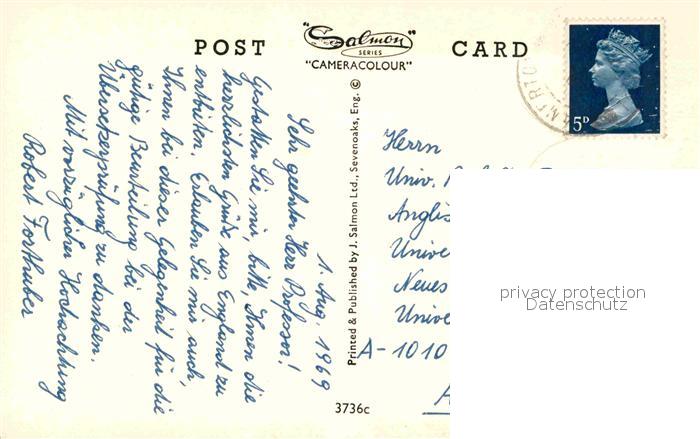 POST CARD
"Salmon"
SERIES
"CAMERACOLOUR"
5D
1. Aug. 1969
Sehr geehrter Herr Professor!
Gestatten Sie mir, bitte, Ihnen die
herzlichsten Grüße aus England zu
entbieten. Erlauben Sie mir auch,
Ihnen bei dieser Gelegenheit für die
gütige Beurteilung bei der
Übersetzerprüfung zu danken.
Mit vorzüglicher Hochachtung
Robert Forthuber
Printed & Published by J. Salmon Ltd., Sevenoaks, Eng. ©
Herrn
Univ.
Anglis
Unive
Neues
Unive
A-1010
A
3736c
privacy protection
Datenschutz